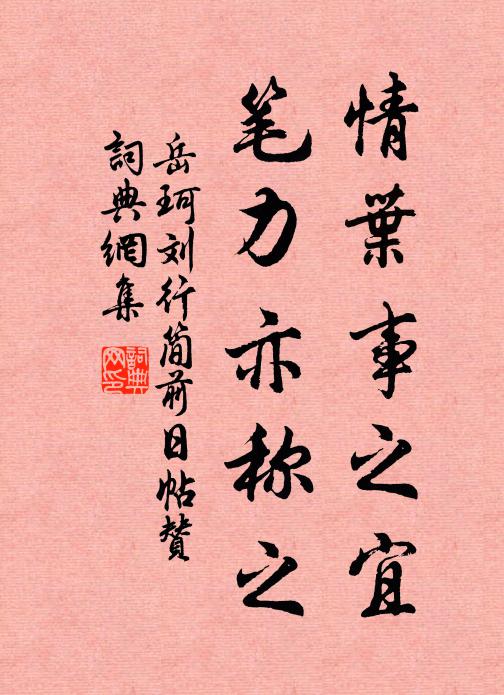 情葉事之宜
笔力亦称之
岳珂刘行简前日帖赞
詞典網集
詞典网印